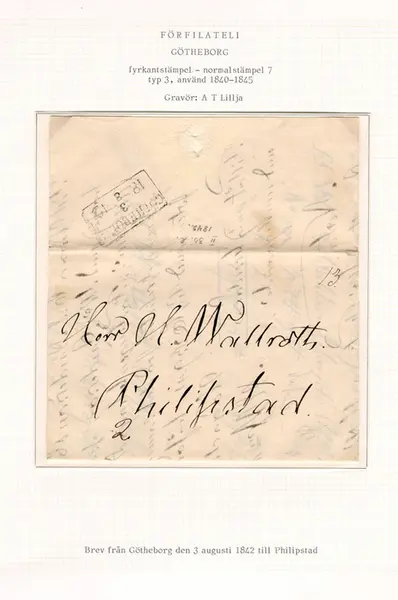 FÖRFILATELI
GÖTHEBORG
fyrkantstämpel - normalstämpel 7
typ 3, använd 1840-1845
Gravör: A T Lillja
3
8
1842.
13
Herr H. Wallroth.
Philipstad.
2
Brev från Götheborg den 3 augusti 1842 till Philipstad